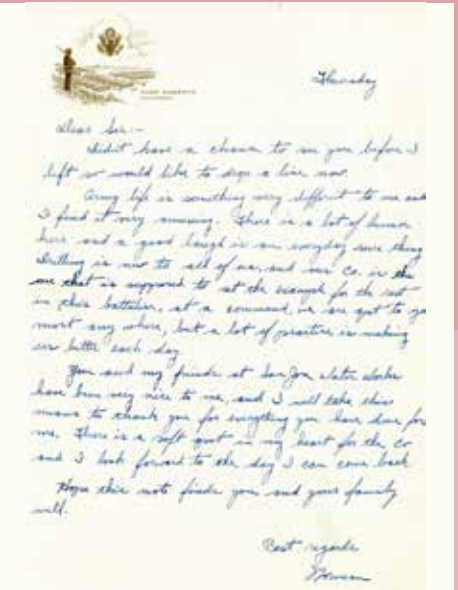 CAMP ROBERTS
CALIFORNIA
Thursday
Dear Sir:-
Didn't have a chance to see you before I
left so would like to drop a line now.
Army life is something very different to me and
I find it very amusing. There is a lot of humor
here and a good laugh is an everyday sure thing
Drilling is new to all of us, and our Co. is the
one that is supposed to set the example for the rest
in this battalion, at a command, we are apt to go
most any where, but a lot of practice is making
us better each day
You and my friends at San Jose Water Works
have been very nice to me, and I will take this
means to thank you for everything you have done for
me. There is a soft spot in my heart for the Co
and I look forward to the day I can come back
Hope this note finds you and your family
well.
Best regards